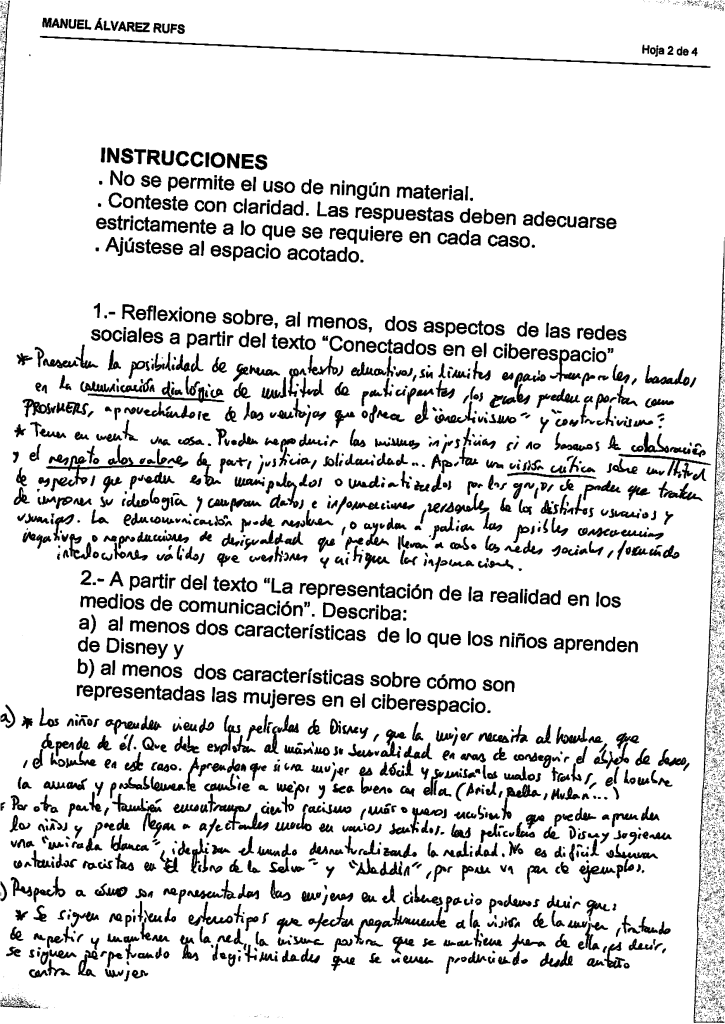 MANUEL ÁLVAREZ RUFS
Hoja 2 de 4
INSTRUCCIONES
. No se permite el uso de ningún material.
. Conteste con claridad. Las respuestas deben adecuarse
estrictamente a lo que se requiere en cada caso.
. Ajústese al espacio acotado.
1.- Reflexione sobre, al menos, dos aspectos de las redes
sociales a partir del texto “Conectados en el ciberespacio”
* Presentan la posibilidad de generar contextos educativos, sin límites espacio-temporales, basados
en la comunicación dialógica de multitud de participantes, los cuales pueden aportar como
PROSUMERS, aprovechándose de las ventajas que ofrece el "conectivismo" y "constructivismo".
* Tener en cuenta una cosa. Pueden reproducir las mismas injusticias si no basamos la colaboración
y el respeto a los valores de paz, justicia, solidaridad... Aportar una visión crítica sobre multitud
de aspectos que puedan estar manipulados o mediatizados por los grupos de poder que traten
de imponer su ideología y compran datos e informaciones personales de los distintos usuarios y
usuarias. La educomunicación puede resolver, o ayudar a paliar las posibles consecuencias
negativas o reproducciones de desigualdad que pueden llevar a cabo las redes sociales, formando
interlocutores válidos que cuestionen y critiquen las informaciones.
2.- A partir del texto “La representación de la realidad en los
medios de comunicación”. Describa:
a) al menos dos características de lo que los niños aprenden
de Disney y
b) al menos dos características sobre cómo son
representadas las mujeres en el ciberespacio.
a) * Los niños aprenden viendo las películas de Disney, que la mujer necesita al hombre, que
depende de él. Que debe explotar al máximo su sensualidad en aras de conseguir el objeto de deseo,
, el hombre en este caso. Aprenden que si una mujer es dócil y sumisa "los malos tratos, el hombre
la amará y probablemente cambie a mejor y sea bueno con ella (Ariel, Bella, Mulan...)
* Por otra parte, también encontramos cierto racismo, más o menos encubierto, que pueden aprender
los niños y puede llegar a afectarles mucho en varios sentidos. Las películas de Disney sugieren
una "mirada blanca", idealizan el mundo desnaturalizando la realidad. No es difícil observar
contenidos racistas en "El libro de la Selva" y "Aladdin", por poner un par de ejemplos.
) Respecto a cómo son representadas las mujeres en el ciberespacio podemos decir que:
* Se siguen repitiendo estereotipos que afectan negativamente a la visión de la mujer, tratando
de repetir y mantener en la red, la misma postura que se mantiene fuera de ella, es decir,
se siguen perpetuando las ilegitimidades que se vienen produciendo desde antaño
contra la mujer